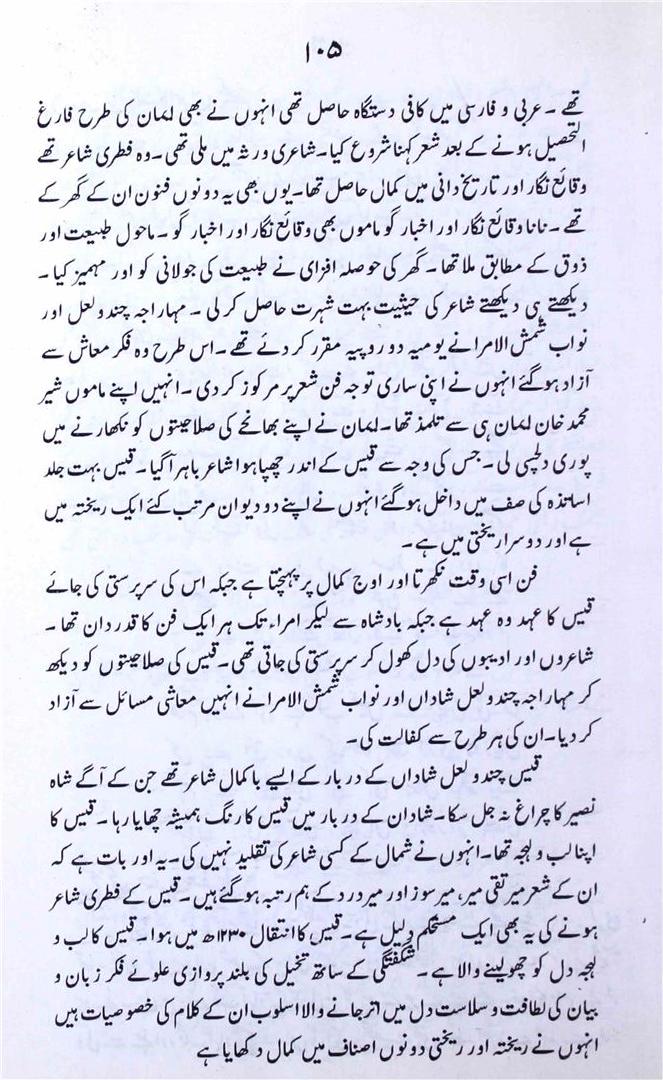 ۱۰۵
تھے ۔ عربی و فارسی میں کافی دستگاہ حاصل تھی انہوں نے بھی ایمان کی طرح فارغ
التحصیل ہونے کے بعد شعر کہنا شروع کیا۔ شاعری ورثہ میں ملی تھی۔ وہ فطری شاعر تھے
وقائع نگار اور تاریخ دانی میں کمال حاصل تھا۔ یوں بھی یہ دونوں فنون ان کے گھر کے
تھے ۔ نانا وقائع نگار اور اخبار گو ماموں بھی وقائع نگار اور اخبار گو ۔ ماحول طبیعت اور
ذوق کے مطابق ملا تھا۔ گھر کی حوصلہ افزای نے طبیعت کی جولانی کو اور مہمیز کیا۔
دیکھتے ہی دیکھتے شاعر کی حیثیت بہت شہرت حاصل کر لی ۔ مہاراجہ چندو لعل اور
نواب شمش الامرا نے یومیہ دو روپیہ مقرر کر دئے تھے ۔ اس طرح وہ فکر معاش سے
آزاد ہو گئے انہوں نے اپنی ساری توجہ فن شعر پر مرکوز کر دی ۔ انہیں اپنے ماموں شیر
محمد خان ایمان ہی سے تلمذ تھا۔ ایمان نے اپنے بھانجے کی صلاحیتوں کو نکھارنے میں
پوری دلچسپی لی ۔ جس کی وجہ سے قیس کے اندر چھپا ہوا شاعر باہر آ گیا ۔ قیس بہت جلد
اساتذہ کی صف میں داخل ہو گئے انہوں نے اپنے دو دیوان مرتب کئے ایک ریختہ میں
ہے اور دوسرا ریختی میں ہے ۔
فن اسی وقت نکھرتا اور اوج کمال پر پہنچتا ہے جبکہ اس کی سرپرستی کی جائے
قیس کا عہد وہ عہد ہے جبکہ بادشاہ سے لیکر امراء تک ہر ایک فن کا قدر دان تھا ۔
شاعروں اور ادیبوں کی دل کھول کر سرپرستی کی جاتی تھی ۔ قیس کی صلاحیتوں کو دیکھ
کر مہاراجہ چندو لعل شاداں اور نواب شمش الامرا نے انہیں معاشی مسائل سے آزاد
کر دیا۔ ان کی ہر طرح سے کفالت کی۔
قیس چندو لعل شاداں کے دربار کے ایسے باکمال شاعر تھے جن کے آگے شاہ
نصیر کا چراغ نہ جل سکا۔ شادان کے دربار میں قیس کا رنگ ہمیشہ چھایا رہا ۔ قیس کا
اپنا لب و لہجہ تھا۔ انہوں نے شمال کے کسی شاعر کی تقلید نہیں کی ۔ یہ اور بات ہے کہ
ان کے شعر میر تقی میر، میر سوز اور میر درد کے ہم رتبہ ہو گئے ہیں۔ قیس کے فطری شاعر
ہونے کی یہ بھی ایک مستحکم دلیل ہے ۔ قیس کا انتقال ۱۲۳۰ھ میں ہوا۔ قیس کا لب و
لہجہ دل کو چھو لینے والا ہے ۔ شگفتگی کے ساتھ تخیل کی بلند پروازی علوئے فکر زبان و
بیان کی لطافت و سلاست دل میں اتر جانے والا اسلوب ان کے کلام کی خصوصیات ہیں
انہوں نے ریختہ اور ریختی دونوں اصناف میں کمال دکھایا ہے